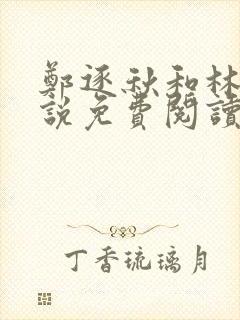 鄭逐秋和林
說免費閱讀
丁香琉璃月